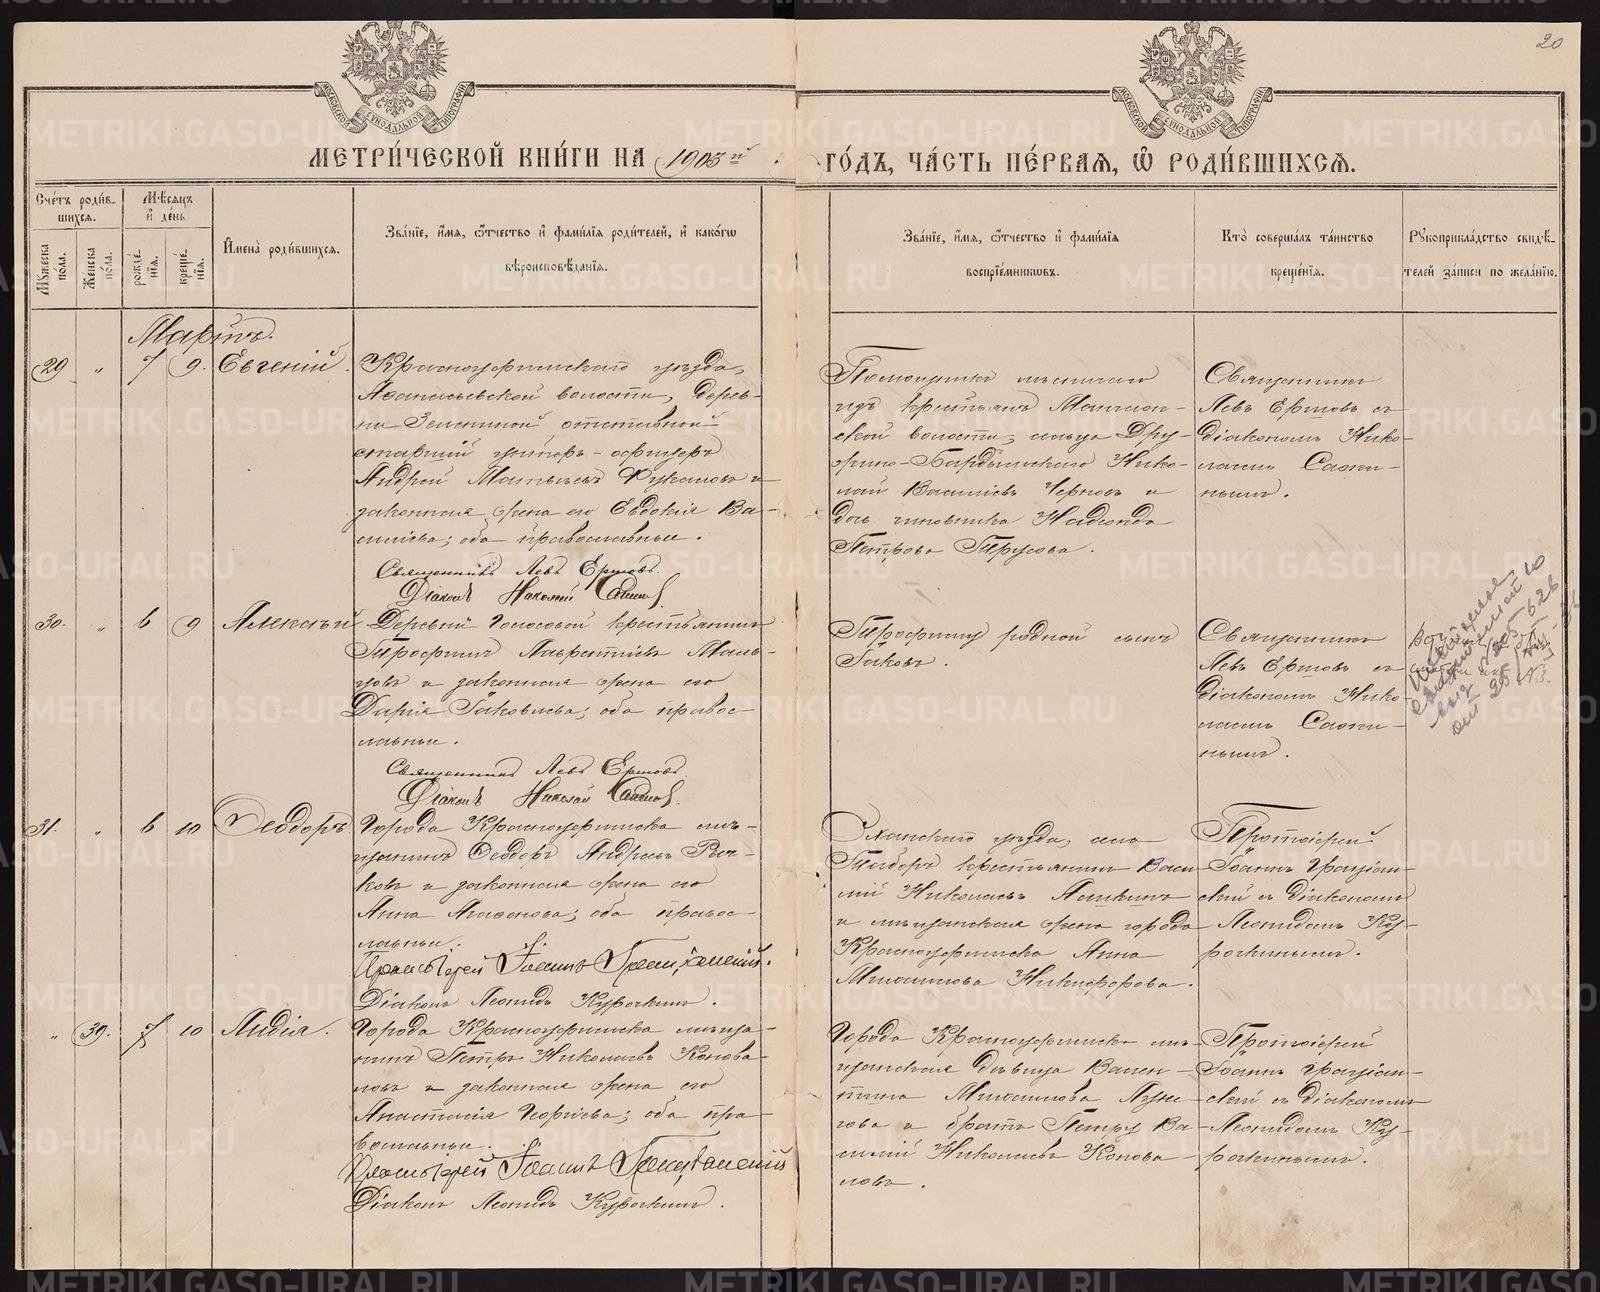 20
МОСКОВСКОЙ СѴНОДАЛЬНОЙ ТИПОГРАФІИ
МОСКОВСКОЙ СѴНОДАЛЬНОЙ ТИПОГРАФІИ
МЕТРИ́ЧЕСКОЙ КНИ́ГИ НА 1905й
ГО́ДЪ, ЧА́СТЬ ПЕ́РВАЯ, Ѡ҆ РОДИ́ВШИХСЯ.
Сче́тъ роди́в-
шихся.
Мѣ́сяцъ
и҆ де́нь
Мꙋжеска по́ла.
Же́нска по́ла.
рожде́-
нїя.
креще́-
нїя.
И҆мена̀ роди́вшихся.
Зва́нїе, и҆́мя, ѻ҆́тчество и҆ фами́лїя роди́телей, и҆ како́гѡ
вѣроисповѣ́данїя.
Зва́нїе, и҆́мя, ѻ҆́тчество и҆ фами́лїя
воспрїе́мникѡвъ.
Кто̀ соверша́лъ та́инство
креще́нїя.
Рꙋкоприкла́дство свидѣ́-
телей за́писи по жела́нїю.
Мартъ.
29 " 7 9. Евгеній.
Красноуфимскаго уѣзда,
Афанасьевской волости, дерев-
ни отставной
старшій унтеръ-офицеръ
Андрей Матвѣевъ и
законная жена его Евдокія Ва-
сильева; оба православные.
Священникъ Левъ Ершовъ.
Діаконъ Николай Сажинъ.
Помощникъ лѣсничаго
изъ крестьянъ Манчаж-
ской волости, сельца Дру-
жино-Бардымскаго Нико-
лай Васильевъ Черновъ и
дочь чиновника Надежда
Петрова Трусова.
Священникъ
Левъ Ершовъ съ
діакономъ Нико-
лаемъ Сажи-
нымъ.
30. " 6 9 Алексѣй
Деревни Голосовой крестьянинъ
Трофимъ Лаврентьевъ Маль-
цовъ и законная жена его
Дарія Іаковлева; оба право-
славные.
Священникъ Левъ Ершовъ.
Діаконъ Николай Сажинъ.
Трофиму родной сынъ
Іаковъ.
Священникъ
Левъ Ершовъ съ
діакономъ Нико-
лаемъ Сажи-
нымъ.
31. " 6 10 Ѳеодоръ
Города Красноуфимска мѣ-
щанинъ Ѳеодоръ Андреевъ Рыч-
ковъ и законная жена его
Анна Агафонова; оба право-
славные.
Протоіерей Іоаннъ Граціанскій.
Діаконъ Леонидъ Курочкинъ.
Оханскаго уѣзда, села
Таборъ крестьянинъ Васи-
лій Николаевъ Лашкинъ
и мѣщанская жена города
Красноуфимска Анна
Михайлова Никифорова.
Протоіерей
Іоаннъ Граціан-
скій съ діакономъ
Леонидомъ Ку-
рочкинымъ.
" 39. 7 10 Лидія.
Города Красноуфимска мѣща-
нинъ Петръ Николаевъ Конова-
ловъ и законная жена его
Анастасія Георгіева; оба пра-
вославные.
Протоіерей Іоаннъ Граціанскій
Діаконъ Леонидъ Курочкинъ.
Города Красноуфимска мѣ-
щанская дѣвица Вален-
тина Михайлова
и братъ Петру Ва-
силій Николаевъ Конова-
ловъ.
Протоіерей
Іоаннъ Граціан-
скій съ діакономъ
Леонидомъ Ку-
рочкинымъ.
METRIKI.GASO-URAL.RU